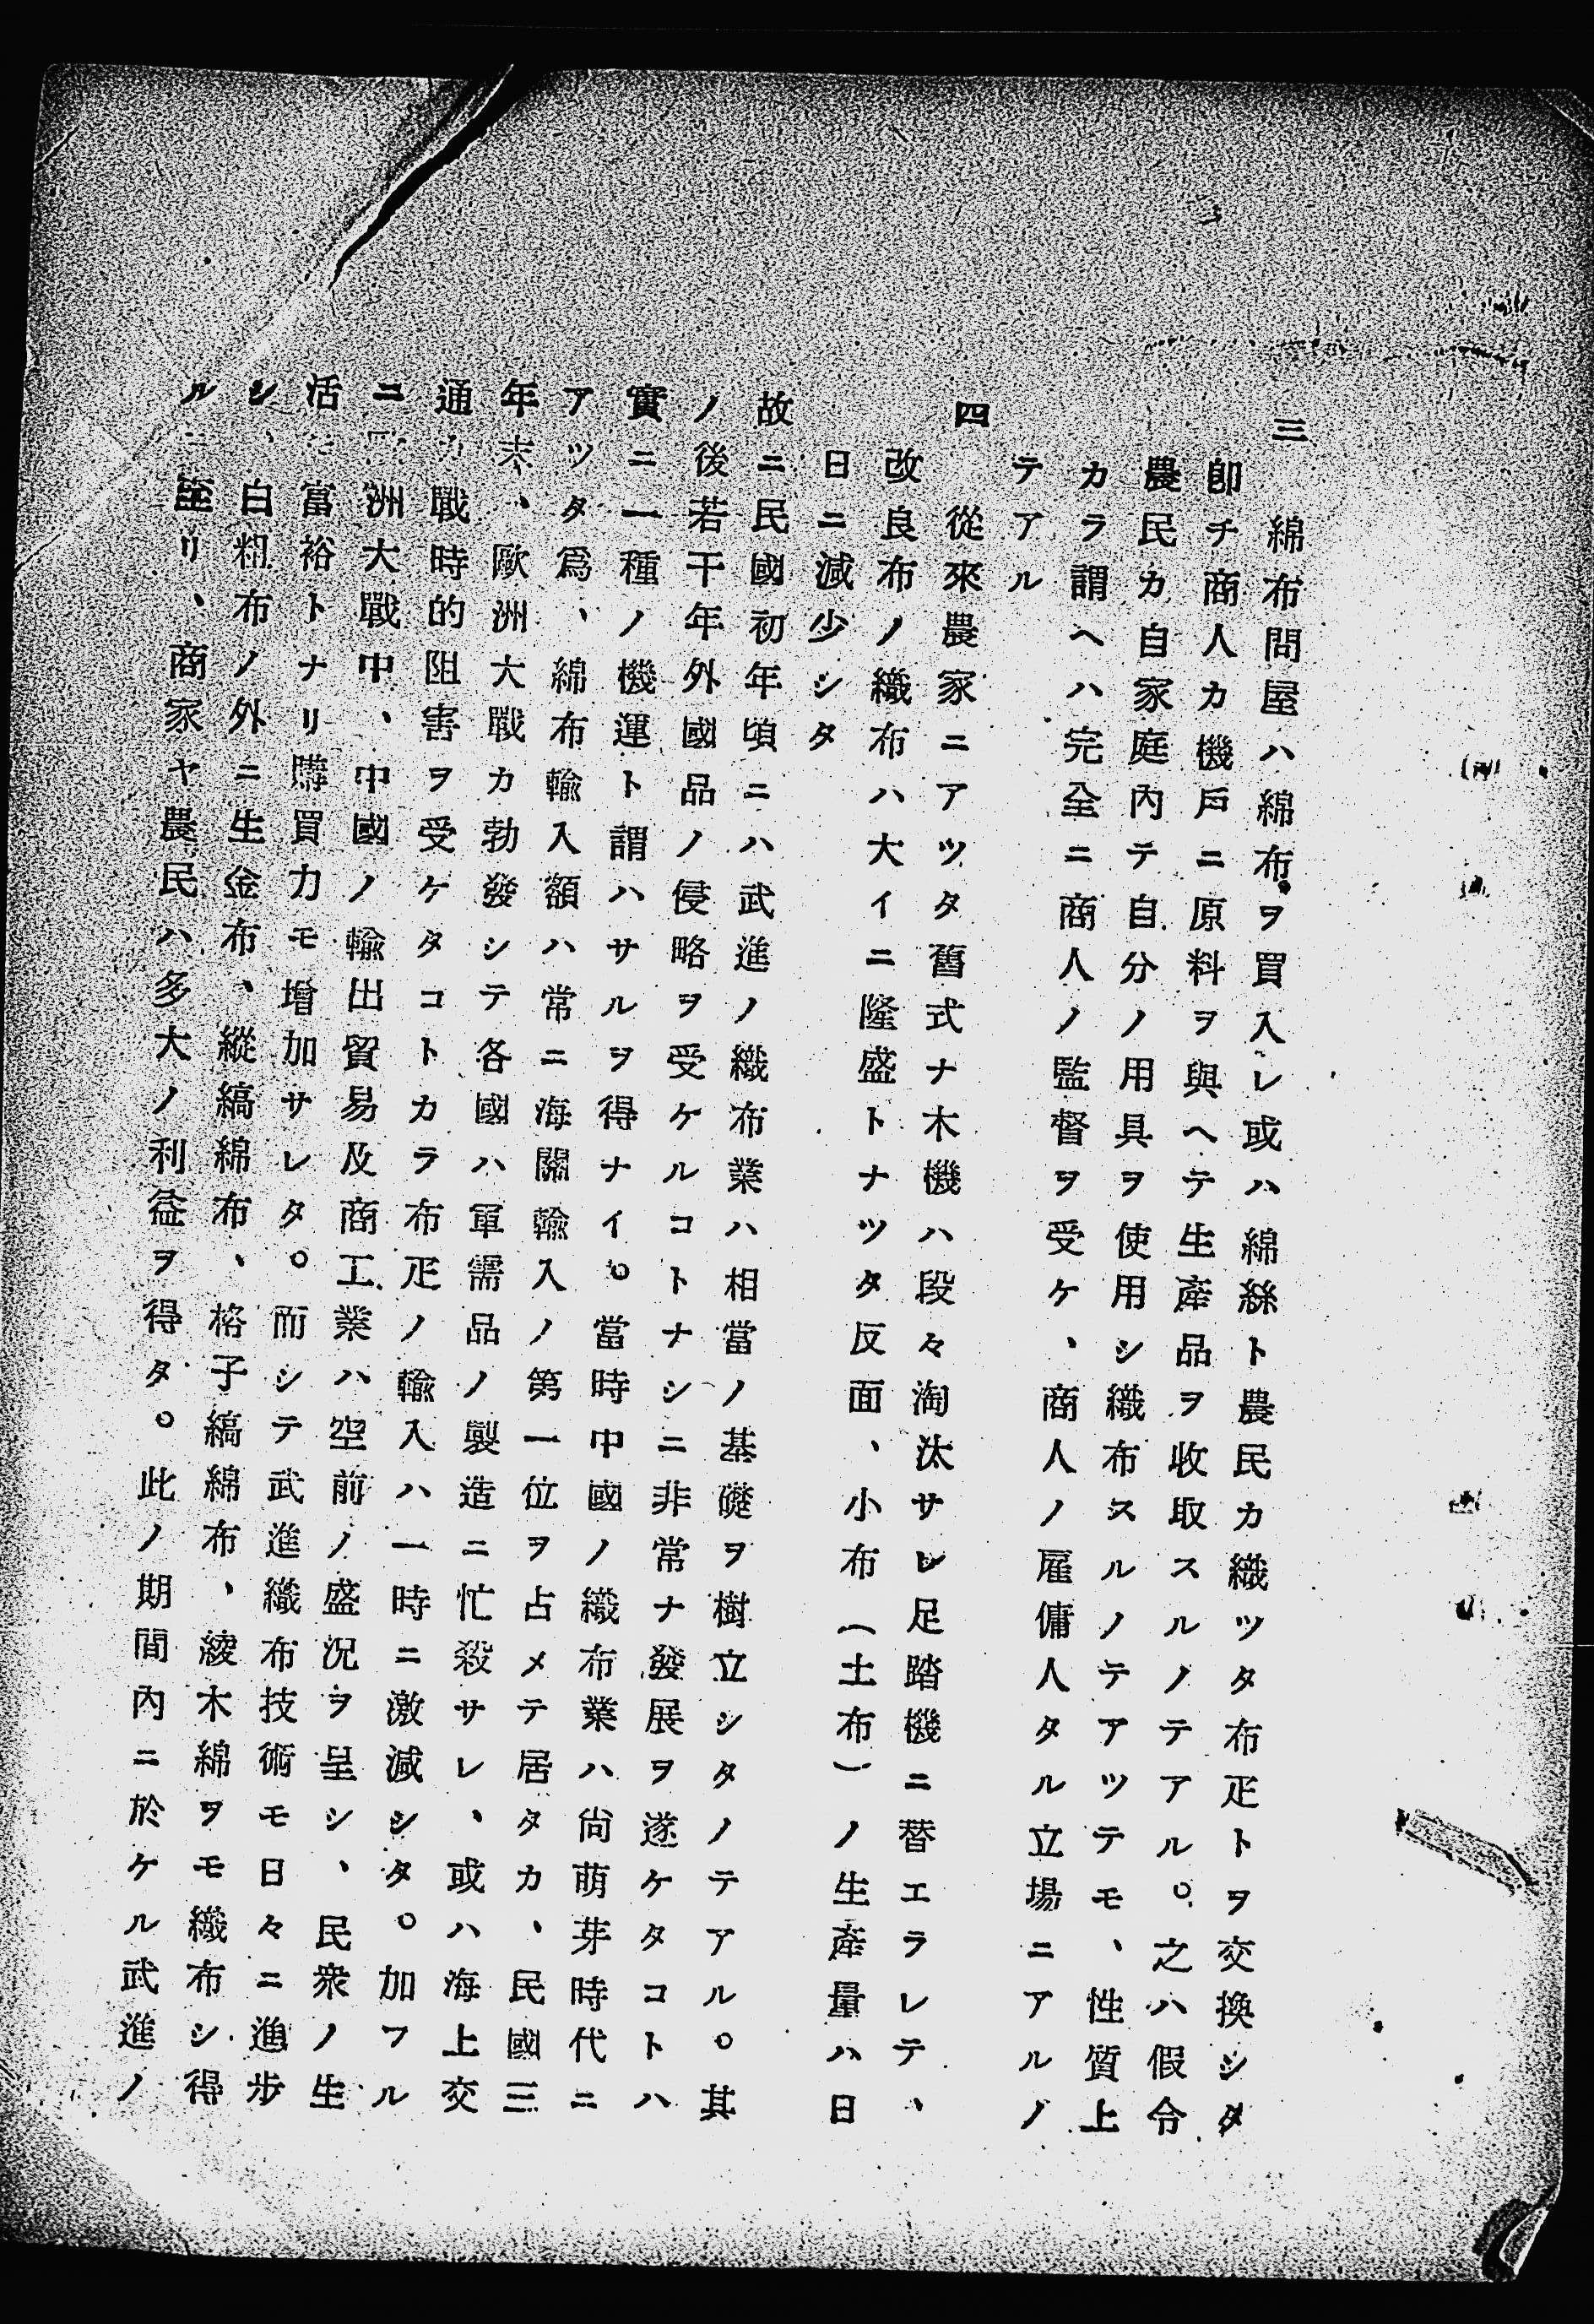 三　綿布問屋ハ綿布ヲ買入レ或ハ綿絲ト農民カ織ツタ布疋トヲ交換シタ
卽チ商人カ機戶ニ原料ヲ與ヘテ生產品ヲ收取スルノテアル。之ハ假令
農民カ自家庭內テ自分ノ用具ヲ使用シ織布スルノテアツテモ、性質上
カラ謂ヘハ完全ニ商人ノ監督ヲ受ケ、商人ノ雇傭人タル立場ニアルノ
テアル
四　從來農家ニアツタ舊式ナ木機ハ段々淘汰サレ足踏機ニ替エラレテ、
改良布ノ織布ハ大イニ隆盛トナツタ反面、小布（土布）ノ生產量ハ日
日ニ減少シタ
故ニ民國初年頃ニハ武進ノ織布業ハ相當ノ基礎ヲ樹立シタノテアル。其
ノ後若干年外國品ノ侵略ヲ受ケルコトナシニ非常ナ發展ヲ遂ケタコトハ
實ニ一種ノ機運ト謂ハサルヲ得ナイ。當時中國ノ織布業ハ尙萠芽時代ニ
アツタ爲、綿布輸入額ハ常ニ海關輸入ノ第一位ヲ占メテ居タカ、民國三
年末、歐洲大戰カ勃發シテ各國ハ軍需品ノ製造ニ忙殺サレ、或ハ海上交
通カ戰時的阻害ヲ受ケタコトカラ布疋ノ輸入ハ一時ニ激減シタ。加フル
ニ歐洲大戰中、中國ノ輸出貿易及商工業ハ空前ノ盛況ヲ呈シ、民衆ノ生
活モ富裕トナリ購買力モ增加サレタ。而シテ武進織布技術モ日々ニ進步
シ、白粗布ノ外ニ生金布、縱縞綿布、格子縞綿布、綾木綿ヲモ織布シ得
ルニ至リ、商家ヤ農民ハ多大ノ利益ヲ得タ。此ノ期間內ニ於ケル武進ノ